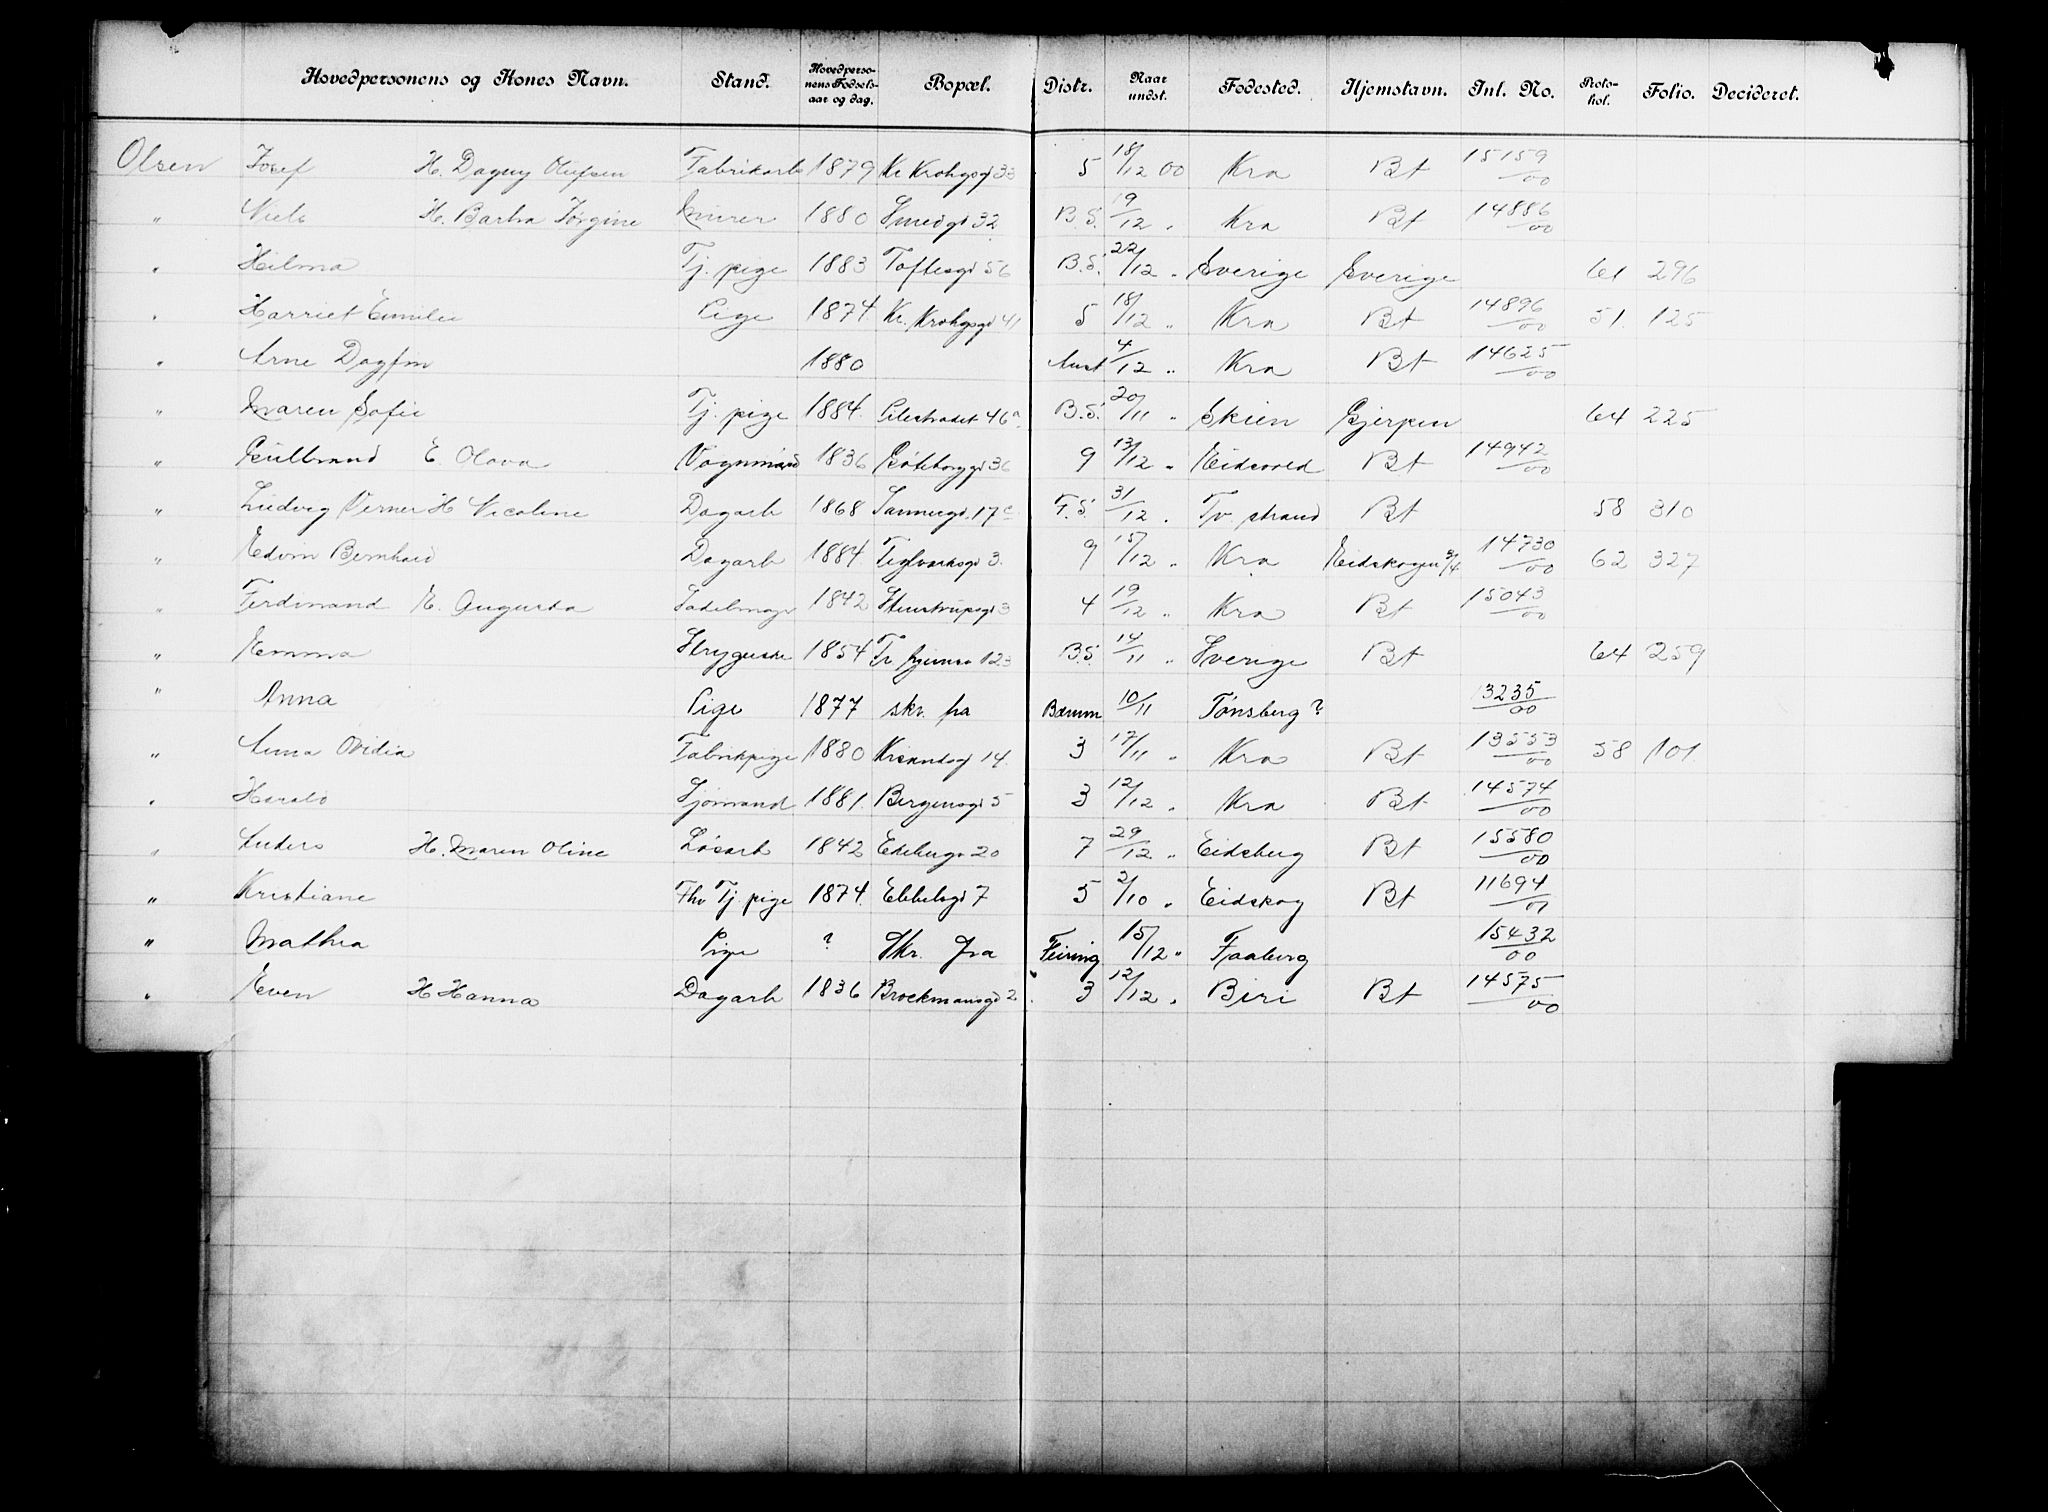 Hovedpersonens og Kones Navn. Stand. Hovedperso-nens Fødsels-aar og dag. Bopæl. Distr. Naar undst. Fødested. Hjemstavn. Inl. No. Proto-kol. Folio. Decideret.
Olsen Josef H. Dagny Olufsen Fabrikarb 1879 Kr Krohgsgd 33 5 18/12 00 Kra Bt 15159/00
" Niels H. Barbra Jørgine Murer 1880 Smedgd 32 B.S. 19/12 " Kra Bt 14886/00
" Hilma Tj. pige 1883 Toftesgd 56 B.S. 22/12 " Sverige Sverige 61 296
" Harriet Emilie Pige 1874 Kr. Krohgsgd 41 5 18/12 " Kra Bt 14896/00 51. 125
" Arne Dagfin 1880 Aust 4/12 " Kra Bt 14625/00
" Maren Sofie Tj. pige 1884. Pilestrædet 46a B.S. 20/11 " Skien Gjerpen 64 225
" Gulbrand E. Olava Vognmand 1836 Gøteborggd 36 9 13/12 " Eidsvold Bt 14942/00
" Ludvig Verner H Nicoline Dagarb 1868 Sannergd. 17c F.S. 31/12 " Tv strand Bt 58 310
" Edvin Bernhard Dagarb 1884. Teglverksgd 3. 9 15/12 " Kra Eidskogen 3/4 14730/00 62 327
" Ferdinand E. Augusta Sadelmager 1842 Stenstrupsgd 3 4 19/12 " Kra Bt 15043/00
" Emma Strygerske 1854 Tr hjemsv 123 B.S. 14/11 " Sverige Bt 64 259
" Anna Pige 1877 skr. fra Bærum 10/11 Tønsberg? 13235/00
" Anna Ovidia Fabrikpige 1880 Krisandsgd 14. 3 17/11 " Kra Bt 13553/00 58 101.
" Harald Sjømand 1881. Bergensgd 5 3 12/12 " Kra Bt 14574/00
" Anders H. Maren Oline Løsarb 1842 Enebergv 20 7 29/12 " Eidsberg Bt 15580/00
" Kristiane Fhv Tj. pige 1874. Ebbelsgd 7 5 2/10 " Eidskog Bt 11694/01
" Mathea Pige ? Skr. fra Feiring 15/12 " Faaberg 15432/00
" Even H Hanna Dagarb 1836 Brockmansgd 2. 3 12/12 " Biri Bt 14575/00